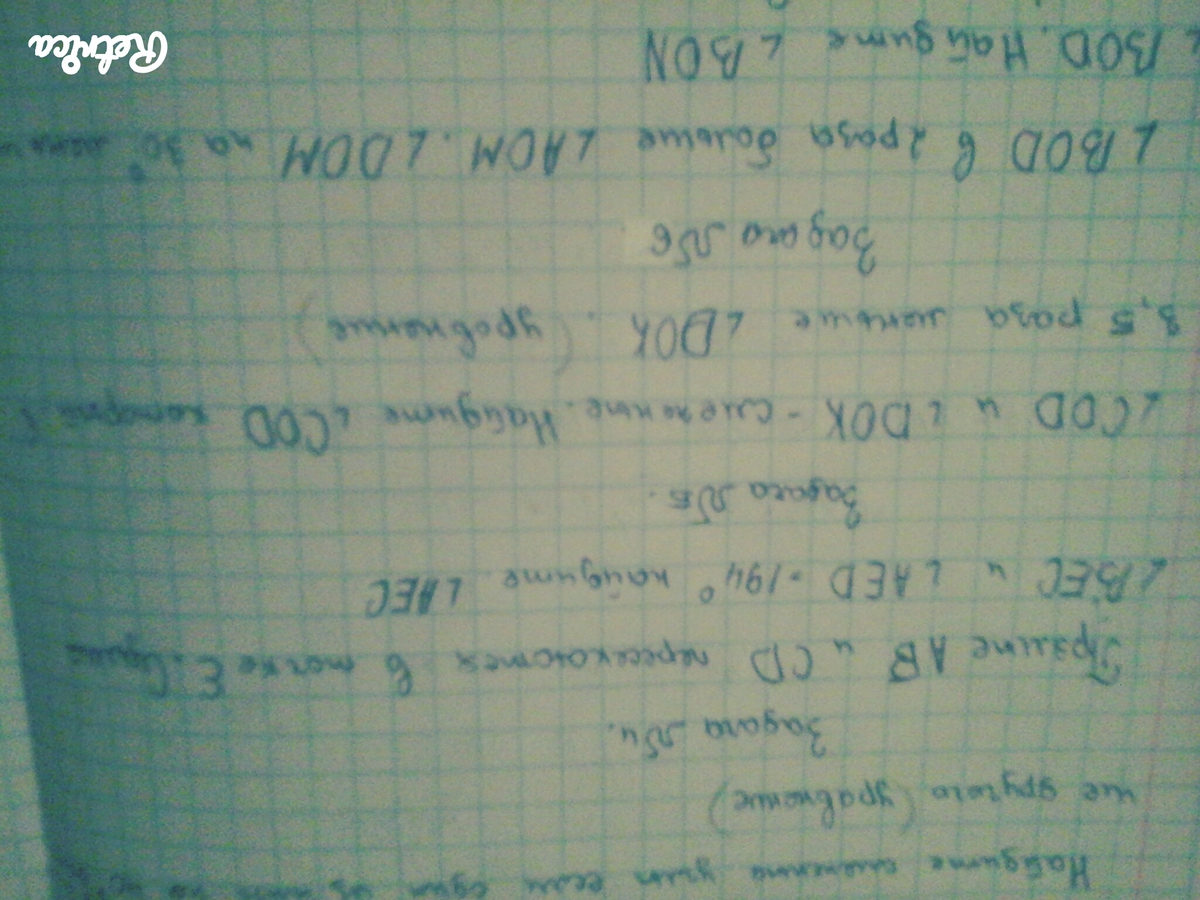 Найдите смежные углы если один из них на 40°
ше другого (уравнение)
Задача №4.
Прямые AB и CD пересекаются в точке E. Сумма
∠BEC и ∠AED = 194° найдите ∠AEC
Задача №5.
∠COD и ∠DOK - смежные. Найдите ∠COD который в
3,5 раза меньше ∠DOK. (уравнение)
Задача №6
∠BOD в 2 раза больше ∠AOM. ∠DOM на 30°
∠BOD. Найдите ∠BON
Retrica